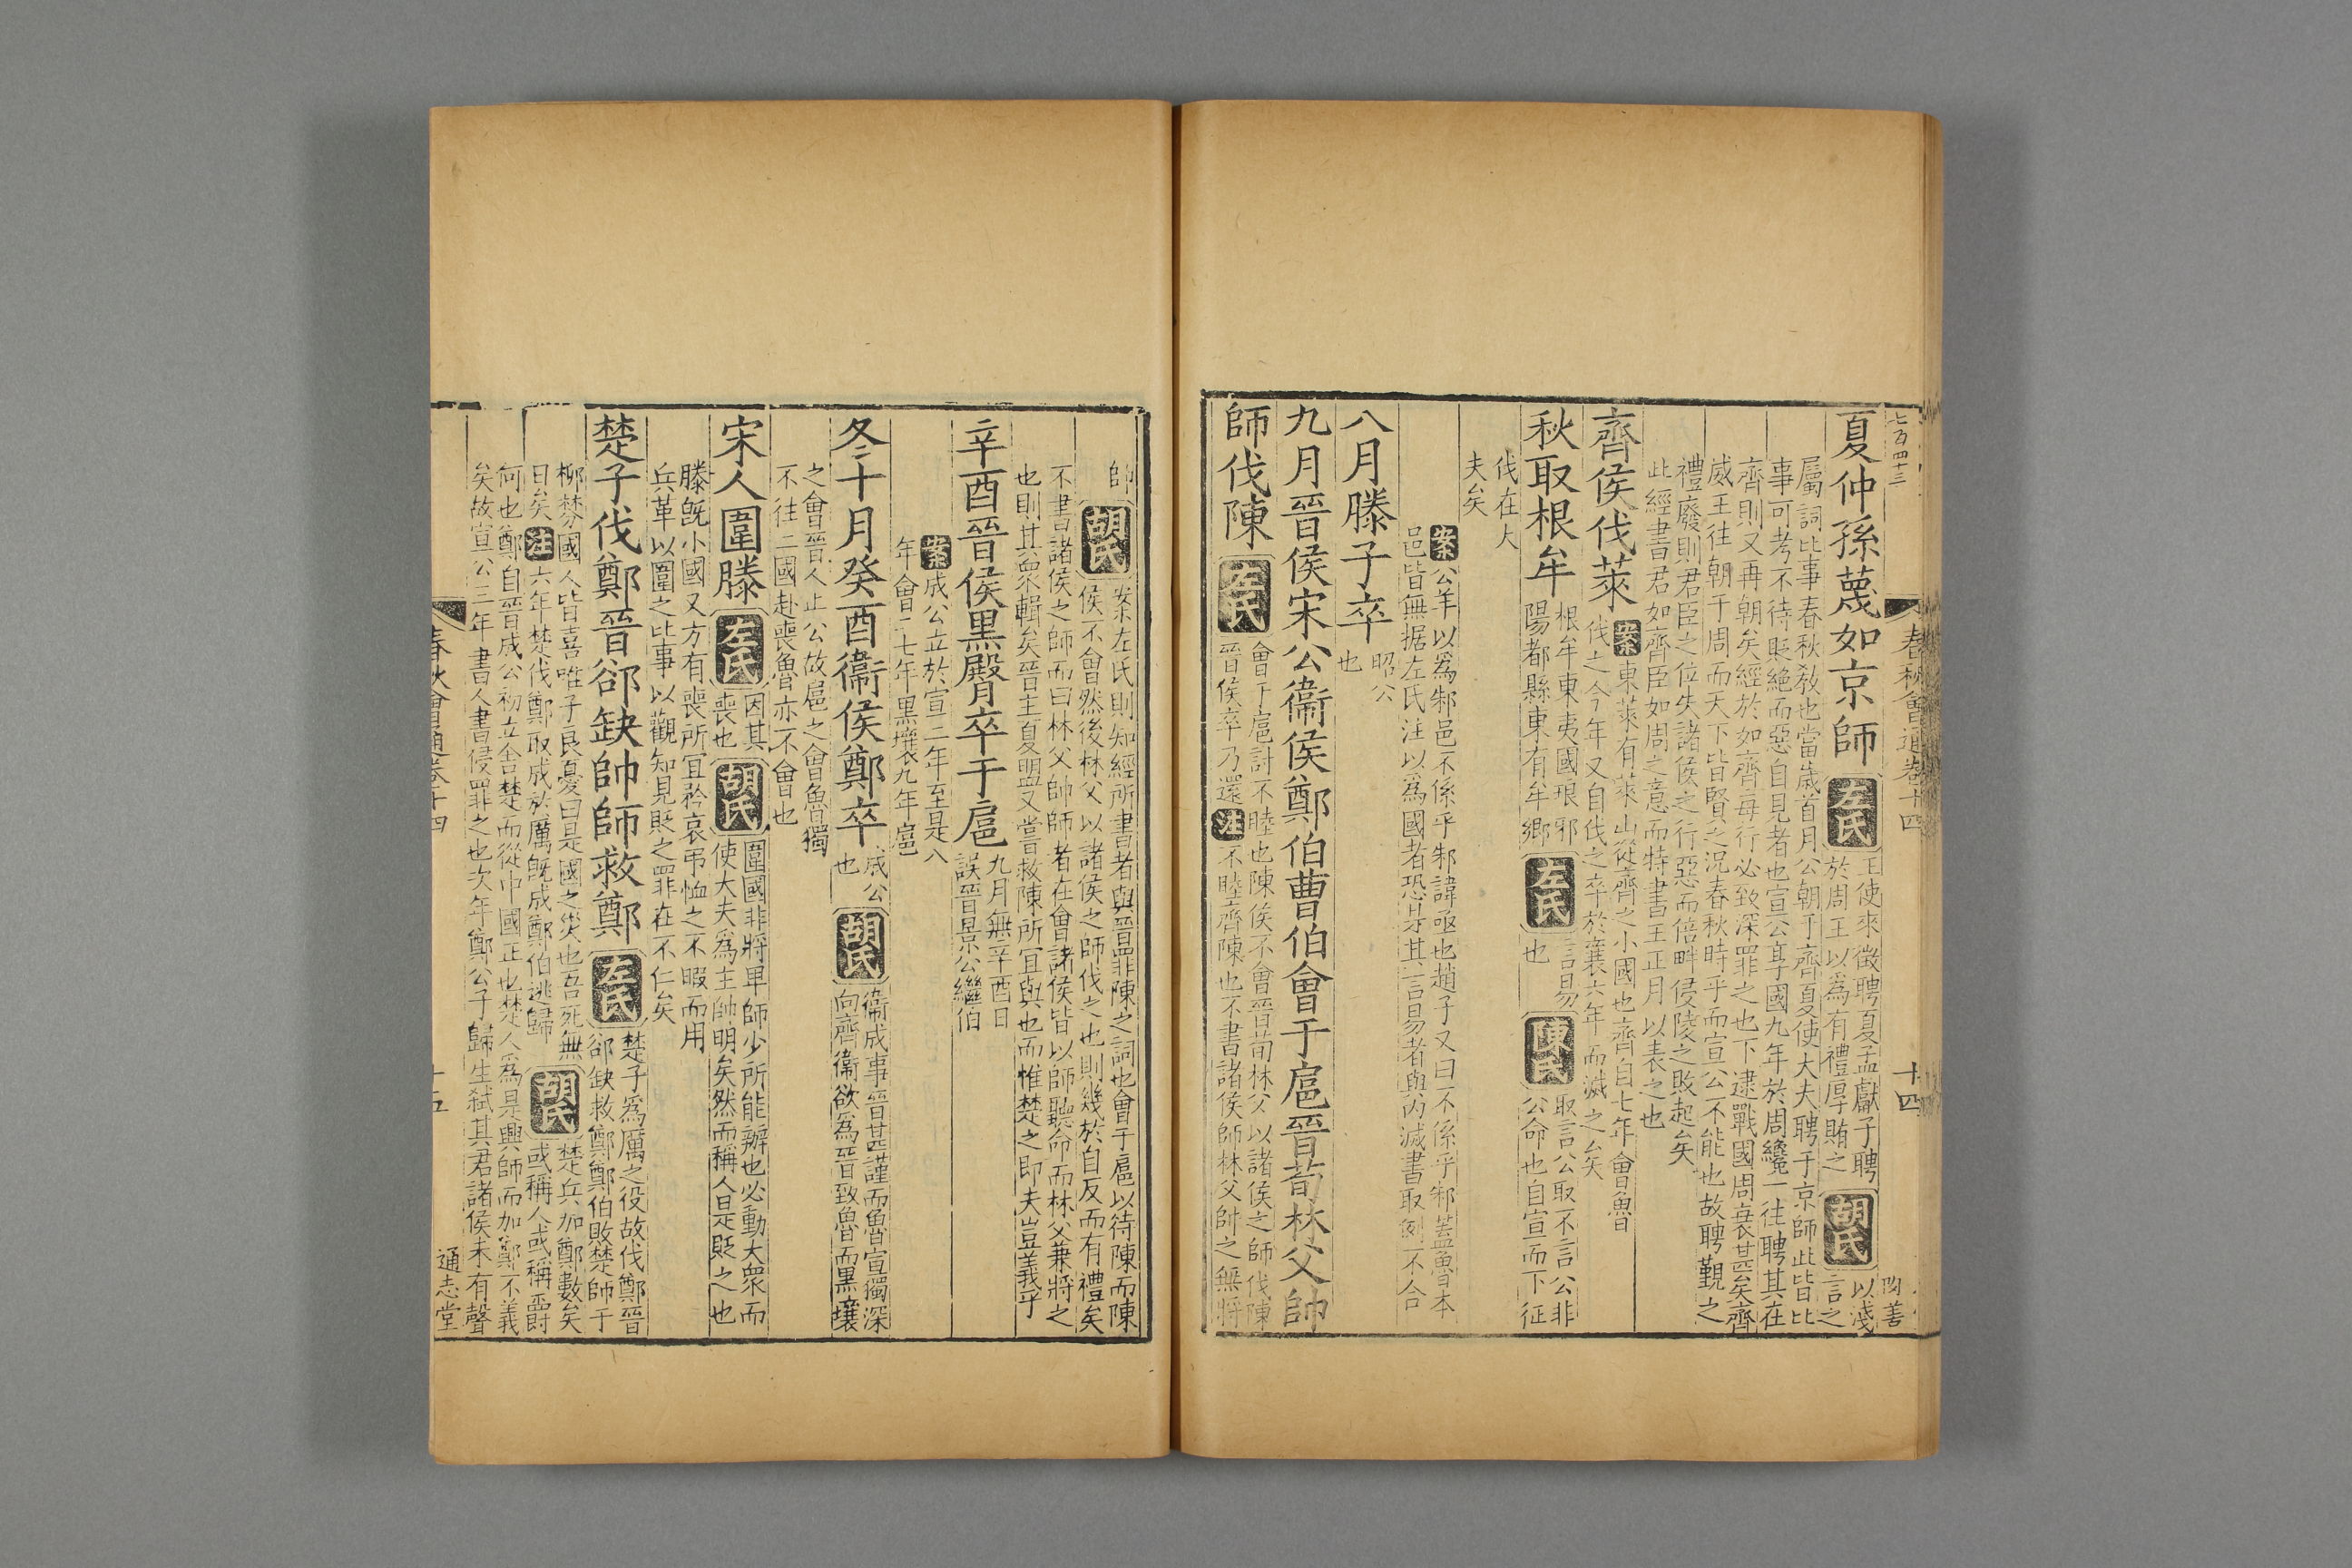 七百四十三
春秋會通卷十四
十四
夏仲孫蔑如京師 左氏 王使來徵聘夏孟獻子聘
於周王以爲有禮厚賄之 胡氏 以淺
言之
屬詞比事春秋敎也當歲首月公朝于齊夏使大夫聘于京師此皆比
事可考不待貶絶而惡自見者也宣公享國九年於周纔一往聘其在
齊則又再朝矣經於如齊每行必致深罪之也下逮戰國周衰甚矣齊
威王往朝于周而天下皆賢之況春秋時乎而宣公不能也故聘覲之
禮廢則君臣之位失諸侯之行惡而倍畔侵陵之敗起矣
此經書君如齊臣如周之意而特書王正月以表之也
齊侯伐萊 案 東萊有萊山從齊之小國也齊自七年會魯
伐之今年又自伐之卒於襄六年而滅之矣
秋取根牟 根牟東夷國琅邪
陽都縣東有牟鄉 左氏 言易
也 陳氏 取言公取不言公非
公命也自宣而下征
伐在大
夫矣
案 公羊以爲邾邑不係乎邾諱亟也趙子又曰不係乎邾蓋魯本
邑皆無据左氏注以爲國者恐是其言易者與內滅書取例不合
八月滕子卒 昭公
也
九月晉侯宋公衞侯鄭伯曹伯會于扈晉荀林父帥
師伐陳 左氏 會于扈討不睦也陳侯不會晉荀林父以諸侯之師伐陳
晉侯卒乃還 注 不睦齊陳也不書諸侯師林父帥之無將
帥 胡氏 案左氏則知經所書者與晉罪陳之詞也會于扈以待陳而陳
侯不會然後林父以諸侯之師伐之也則幾於自反而有禮矣
不書諸侯之師而曰林父帥師者在會諸侯皆以師聽命而林父兼將之
也則其衆輯矣晉主夏盟又嘗救陳所宜與也而惟楚之即夫豈義乎
辛酉晉侯黑臀卒于扈 九月無辛酉日
誤晉景公繼伯
案 成公立於宣三年至是八
年會二七年黑壤九年扈
冬十月癸酉衞侯鄭卒 成公
也 胡氏 衞成事晉甚謹而魯宣獨深
向齊衞欲爲晉致魯而黑壤
之會晉人止公故扈之會魯獨
不往二國赴喪魯亦不會也
宋人圍滕 左氏 因其
喪也 胡氏 圍國非將卑師少所能辦也必動大衆而
使大夫爲主帥明矣然而稱人是貶之也
滕旣小國又方有喪所宜矜哀弔恤之不暇而用
兵革以圍之比事以觀知見貶之罪在不仁矣
楚子伐鄭晉郤缺帥師救鄭 左氏 楚子爲厲之役故伐鄭晉
郤缺救鄭鄭伯敗楚師于
柳棼國人皆喜唯子良憂曰是國之災也吾死無
日矣 注 六年楚伐鄭取成於厲旣成鄭伯逃歸 胡氏 楚兵加鄭數矣
或稱人或稱爵
何也鄭自晉成公初立舍楚而從中國正也楚人爲是興師而加鄭不義
矣故宣公三年書人書侵罪之也次年鄭公子歸生弑其君諸侯未有聲
春秋會通卷十四
十五
通志堂